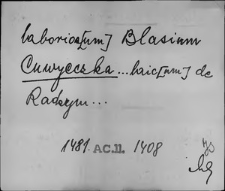 laborios[um] Blasium
Cuwyeczka ...haic[um] de
Radzym...
1481 AC.II. 1408